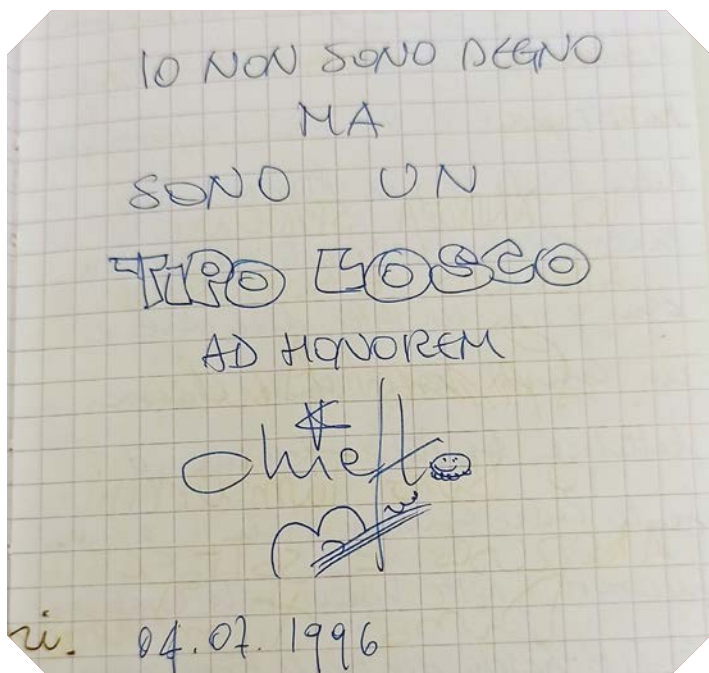 IO NON SONO DEGNO
MA
SONO UN
TIPO LOSCO
AD HONOREM
04.07.1996